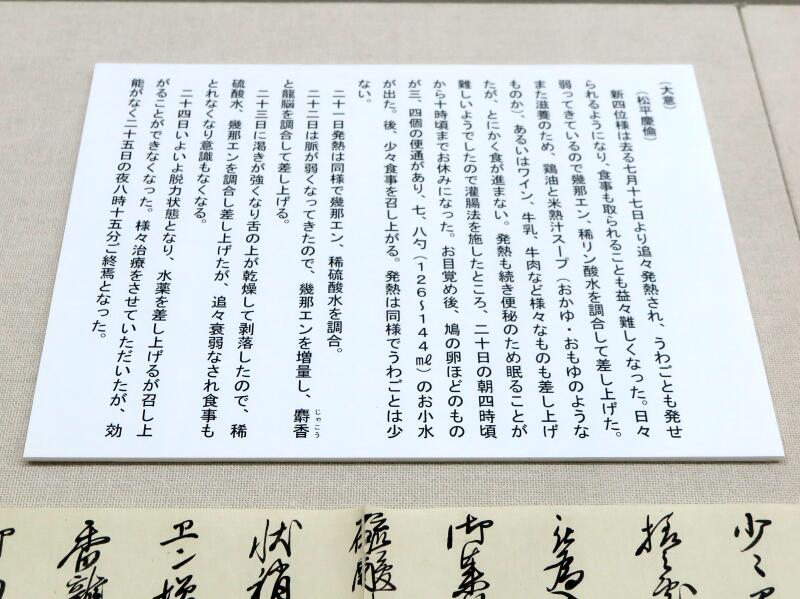 （大意）
（松平慶倫）
新四位様は去る七月十七日より追々発熱され、うわごとも発せ
られるようになり、食事も取られることも益々難しくなった。日々
弱ってきているので幾那エン、稀リン酸水を調合して差し上げた。
また滋養のため、鶏油と米熟汁スープ（おかゆ・おもゆのような
ものか）、あるいはワイン、牛乳、牛肉など様々なものも差し上げ
たが、とにかく食が進まない。発熱も続き便秘のため眠ることが
難しいようでしたので灌腸法を施したところ、二十日の朝四時頃
から十時頃までお休みになった。お目覚め後、鳩の卵ほどのもの
が三、四個の便通があり、七、八勺（１２６～１４４㎖）のお小水
が出た。後、少々食事を召し上がる。発熱は同様でうわごとは少
ない。
二十一日発熱は同様で幾那エン、稀硫酸水を調合。
二十二日は脈が弱くなってきたので、幾那エンを増量し、麝香
じゃこう
と龍脳を調合して差し上げる。
二十三日に渇きが強くなり舌の上が乾燥して剥落したので、稀
硫酸水、幾那エンを調合し差し上げたが、追々衰弱なされ食事も
とれなくなり意識もなくなる。
二十四日いよいよ脱力状態となり、水薬を差し上げるが召し上
がることができなくなった。様々治療をさせていただいたが、効
能がなく二十五日の夜八時十五分ご終焉となった。